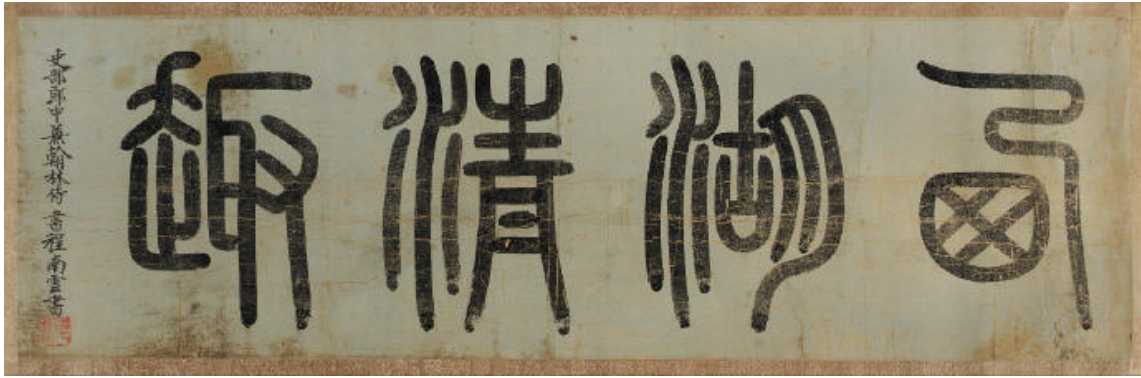 西湖清趣
吏部郎中兼翰林侍書程南雲書